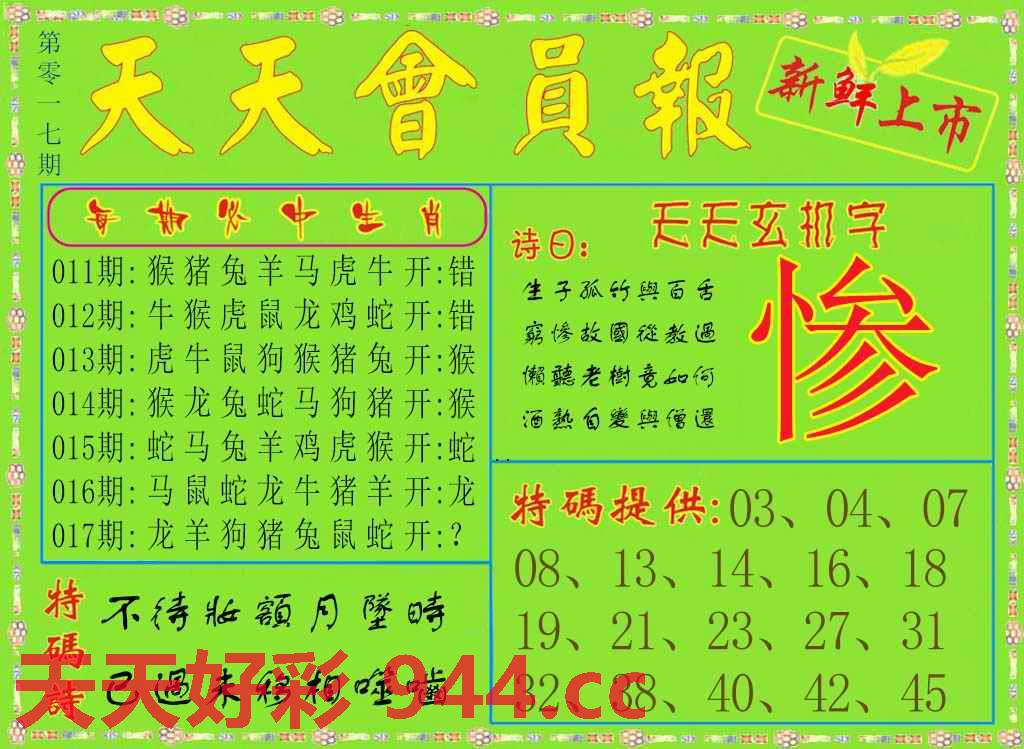 第零一七期
天天會員報
新鮮上市
每期必中生肖
011期:猴猪兔羊马虎牛开:错
012期:牛猴虎鼠龙鸡蛇开:错
013期:虎牛鼠狗猴猪兔开:猴
014期:猴龙兔蛇马狗猪开:猴
015期:蛇马兔羊鸡虎猴开:蛇
016期:马鼠蛇龙牛猪羊开:龙
017期:龙羊狗猪兔鼠蛇开:?
天天玄机字
诗曰:
生子孤竹與百舌
窮慘故國從教過
懶聽老樹竟如何
酒熟自變與僧還
惨
特碼提供:03、04、07
08、13、14、16、18
19、21、23、27、31
32、38、40、42、45
特碼詩
不待妝額月墜時
已過未移相噬嚙
天天好彩 944.cc